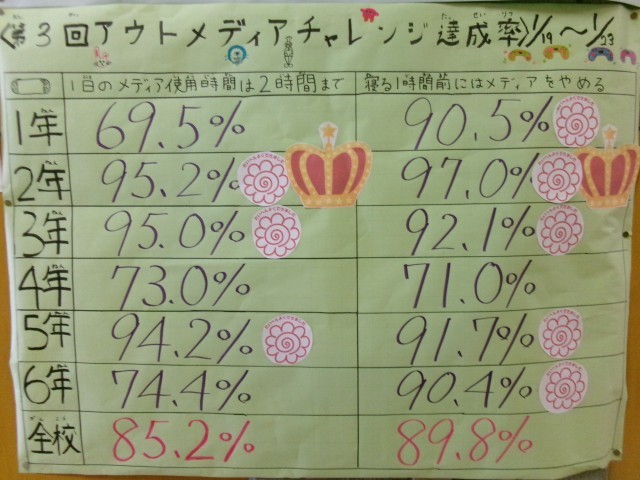 〈第3回アウトメディアチャレンジ達成率〉1/19～1/23
1日のメディア使用時間は2時間まで 寝る1時間前にはメディアをやめる
1年 69.5% 90.5%
2年 95.2% 97.0%
3年 95.0% 92.1%
4年 73.0% 71.0%
5年 94.2% 91.7%
6年 74.4% 90.4%
全校 85.2% 89.8%